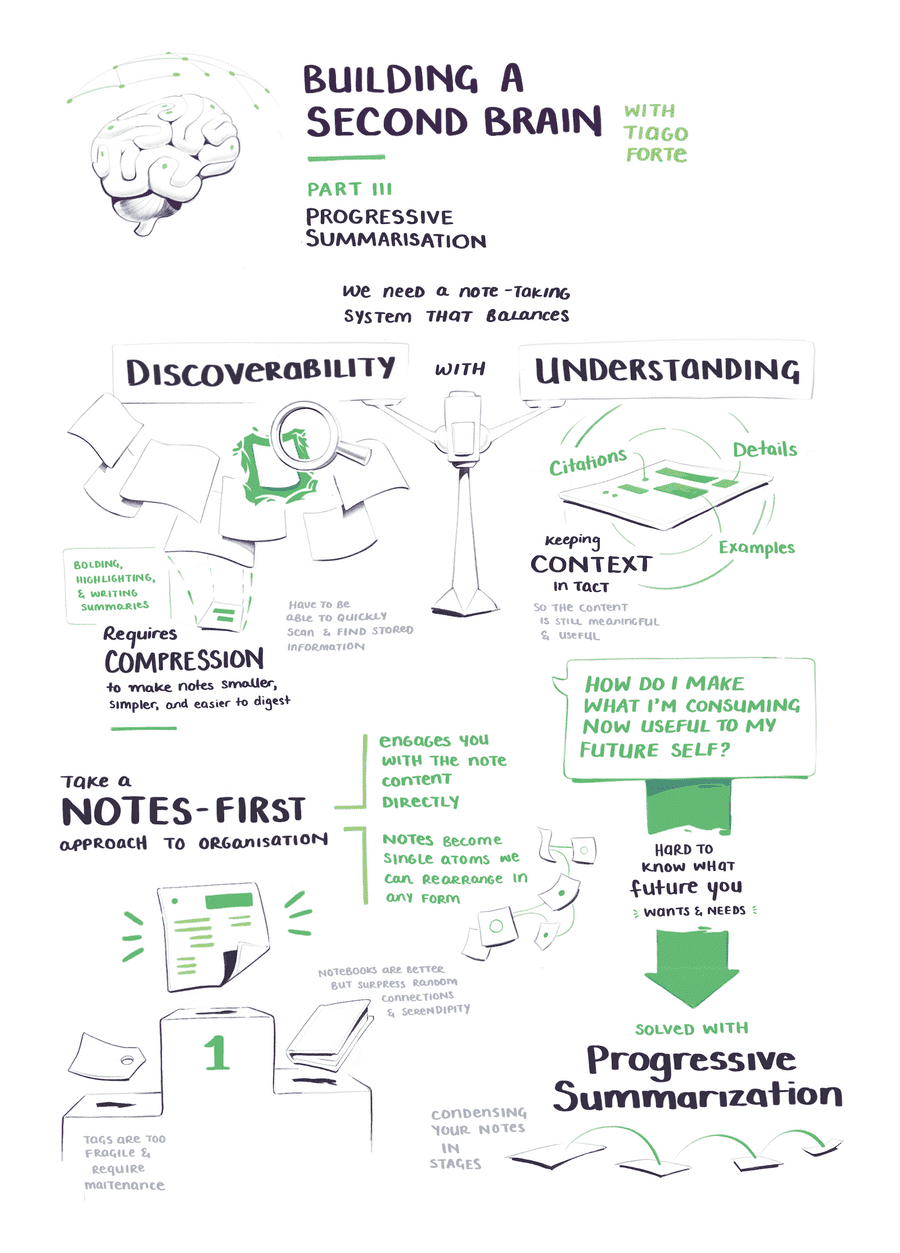 BUILDING A
SECOND BRAIN
WITH
TIAGO
FORTE
PART III
PROGRESSIVE
SUMMARISATION
WE NEED A NOTE-TAKING
SYSTEM THAT BALANCES
DISCOVERABILITY
WITH
UNDERSTANDING
Citations
Details
Examples
keeping
CONTEXT
IN TACT
SO THE CONTENT
IS STILL MEANINGFUL
& USEFUL
BOLDING,
HIGHLIGHTING,
& WRITING
SUMMARIES
HAVE TO BE
ABLE TO QUICKLY
SCAN & FIND STORED
INFORMATION
Requires
COMPRESSION
to make notes smaller,
simpler, and easier to digest
HOW DO I MAKE
WHAT I'M CONSUMING
NOW USEFUL TO MY
FUTURE SELF?
TAKE A
NOTES-FIRST
APPROACH TO ORGANISATION
ENGAGES YOU
WITH THE NOTE
CONTENT
DIRECTLY
NOTES BECOME
SINGLE ATOMS WE
CAN REARRANGE IN
ANY FORM
HARD TO
KNOW WHAT
future you
WANTS & NEEDS
NOTEBOOKS ARE BETTER
BUT SURPRESS RANDOM
CONNECTIONS
& SERENDIPITY
1
TAGS ARE TOO
FRAGILE &
REQUIRE
MAITENANCE
SOLVED WITH
Progressive
Summarization
CONDENSING
YOUR NOTES
IN
STAGES